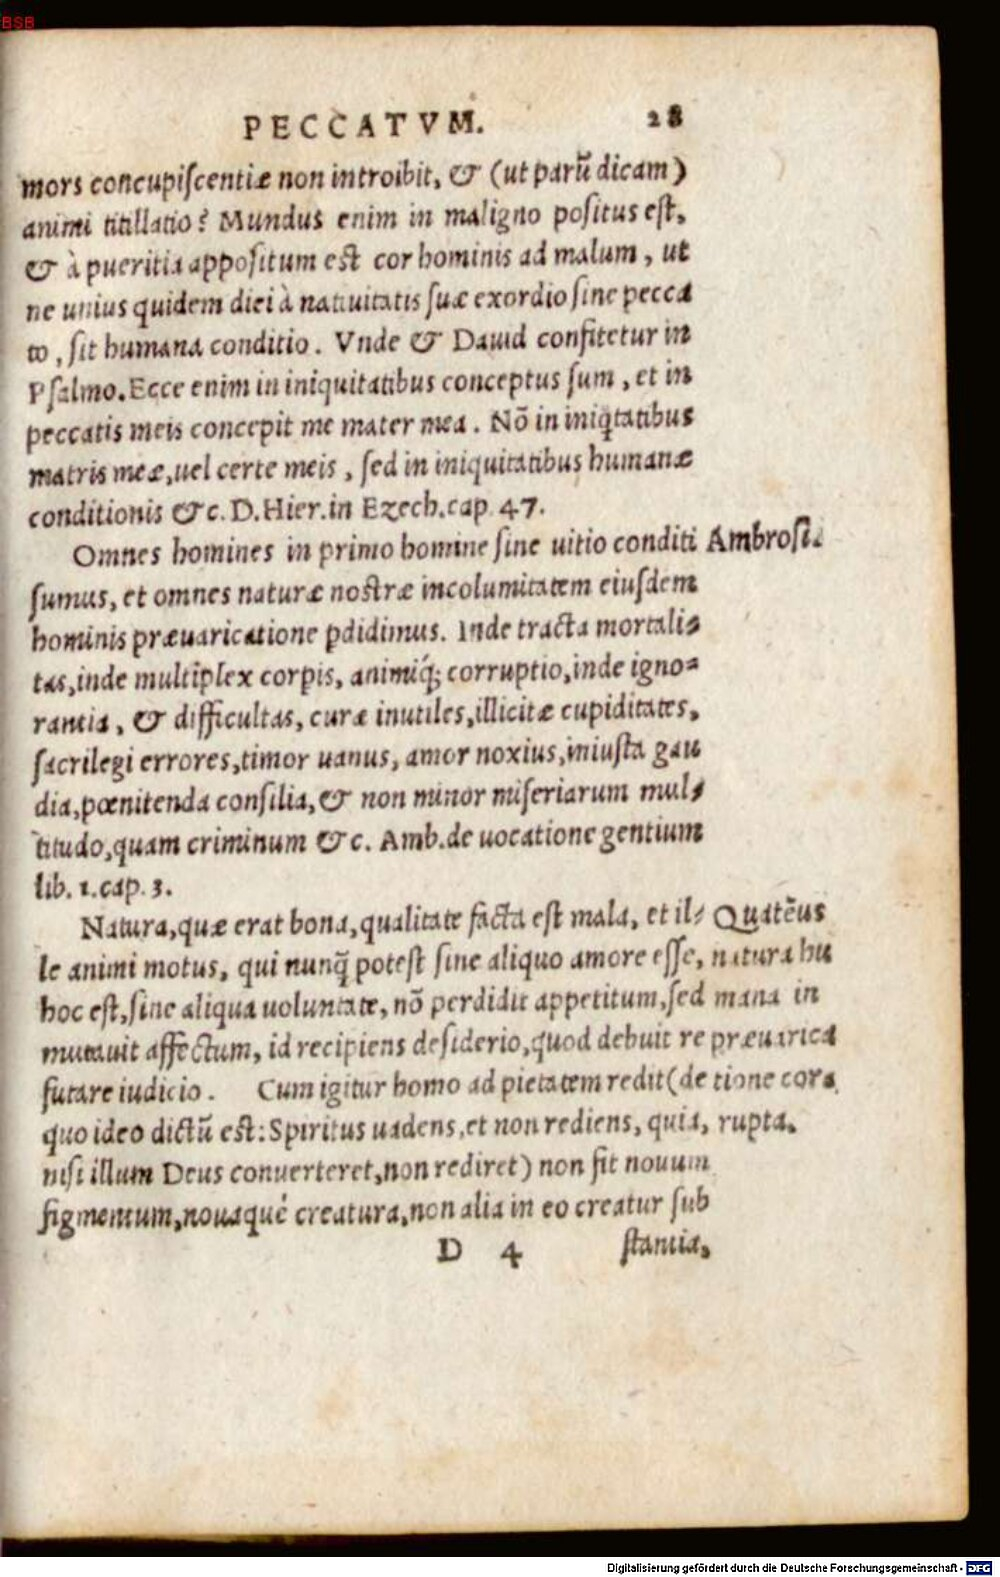 BSB
PECCATVM. 28
mors concupiſcentiæ non introibit, & (ut parū dicam)
animi titillatio? Mundus enim in maligno poſitus eſt,
& à pueritia appoſitum eſt cor hominis ad malum, ut
ne unius quidem diei à natiuitatis ſuæ exordio ſine pecca
to, ſit humana conditio. Vnde & Dauid confitetur in
Pſalmo. Ecce enim in iniquitatibus conceptus ſum, et in
peccatis meis concepit me mater mea. Nō in iniq̃tatibus
matris meæ, uel certe meis, ſed in iniquitatibus humanæ
conditionis &c. D. Hier. in Ezech. cap. 47.
Omnes homines in primo homine ſine uitio conditi
Ambroſi.
ſumus, et omnes naturæ noſtræ incolumitatem eiuſdem
hominis præuaricatione ꝑdidimus. Inde tracta mortali⸗
tas, inde multiplex corꝑis, animiq́ꝫ corruptio, inde igno⸗
rantia, & difficultas, curæ inutiles, illicitæ cupiditates,
ſacrilegi errores, timor uanus, amor noxius, iniuſta gau
dia, pœnitenda conſilia, & non minor miſeriarum mul⸗
titudo, quam criminum &c. Amb. de uocatione gentium
lib. 1. cap. 3.
Natura, quæ erat bona, qualitate facta eſt mala, et il⸗
le animi motus, qui nunq̃ poteſt ſine aliquo amore eſſe,
hoc eſt, ſine aliqua uoluntate, nō perdidit appetitum, ſed
mutauit affectum, id recipiens deſiderio, quod debuit re
futare iudicio. Cum igitur homo ad pietatem redit (de
quo ideo dictū eſt: Spiritus uadens, et non rediens, quia,
niſi illum Deus conuerteret, non rediret) non fit nouum
figmentum, nouaqué creatura, non alia in eo creatur ſub
Quatēus
natura hu
mana in
præuarica
tione cor⸗
rupta.
D 4 ſtantia,
Digitalisierung gefördert durch die Deutsche Forschungsgemeinschaft - DFG